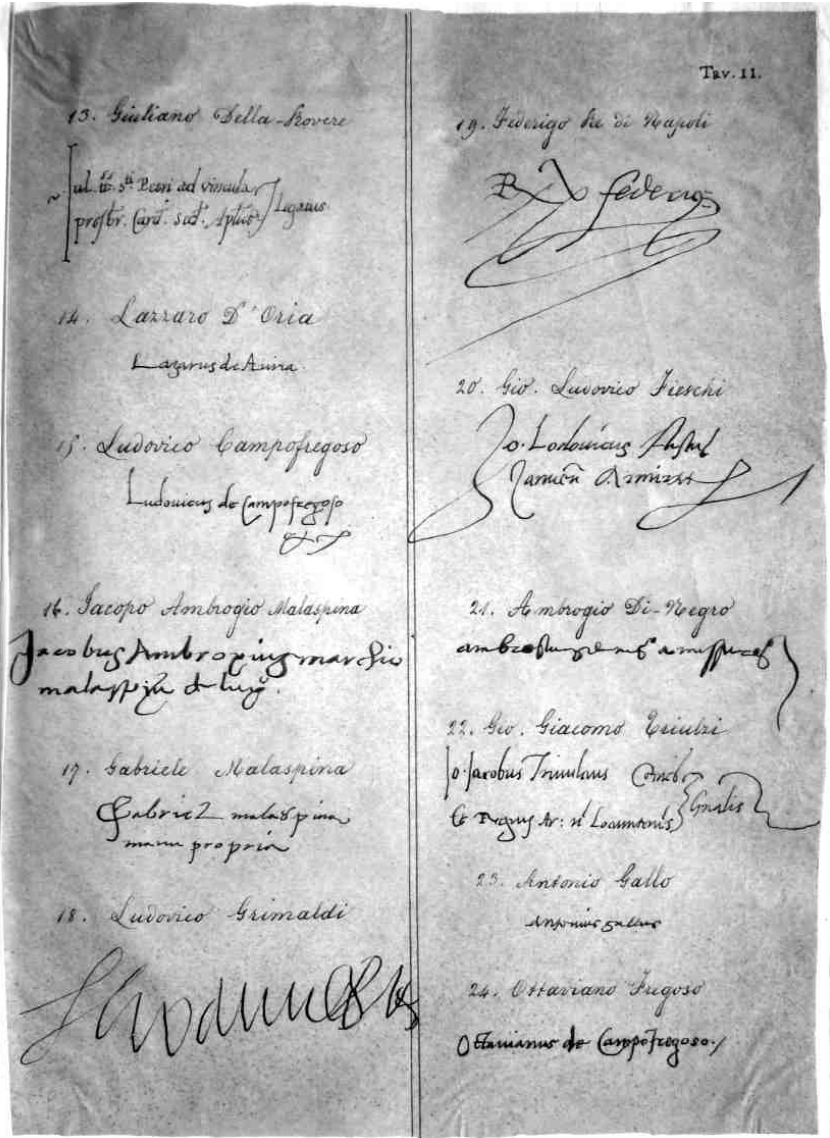 Tav. 11.
13. Giuliano Della-Rovere
Jul. tt. Sti. Petri ad vincula
presbr. Card. Legatus
14. Lazzaro D'Oria
Lazarus de Auria
15. Ludovico Campofregoso
Ludovicus de Campofregoso
16. Jacopo Ambrogio Malaspina
Jacobus Ambroxius marchio
malaspina
17. Gabriele Malaspina
Gabriel malaspina
manu propria
18. Ludovico Grimaldi
19. Federigo Re di Napoli
Rex federicus
20. Gio. Ludovico Fieschi
Jo. Lodovicus
21. Ambrogio Di-Negro
22. Gio. Giacomo Triulzi
Jo. Jacobus Trivulcius
et Regius Locumtenens Gnalis
23. Antonio Gallo
Antonius gallus
24. Ottaviano Fregoso
Octavianus de Campofregoso